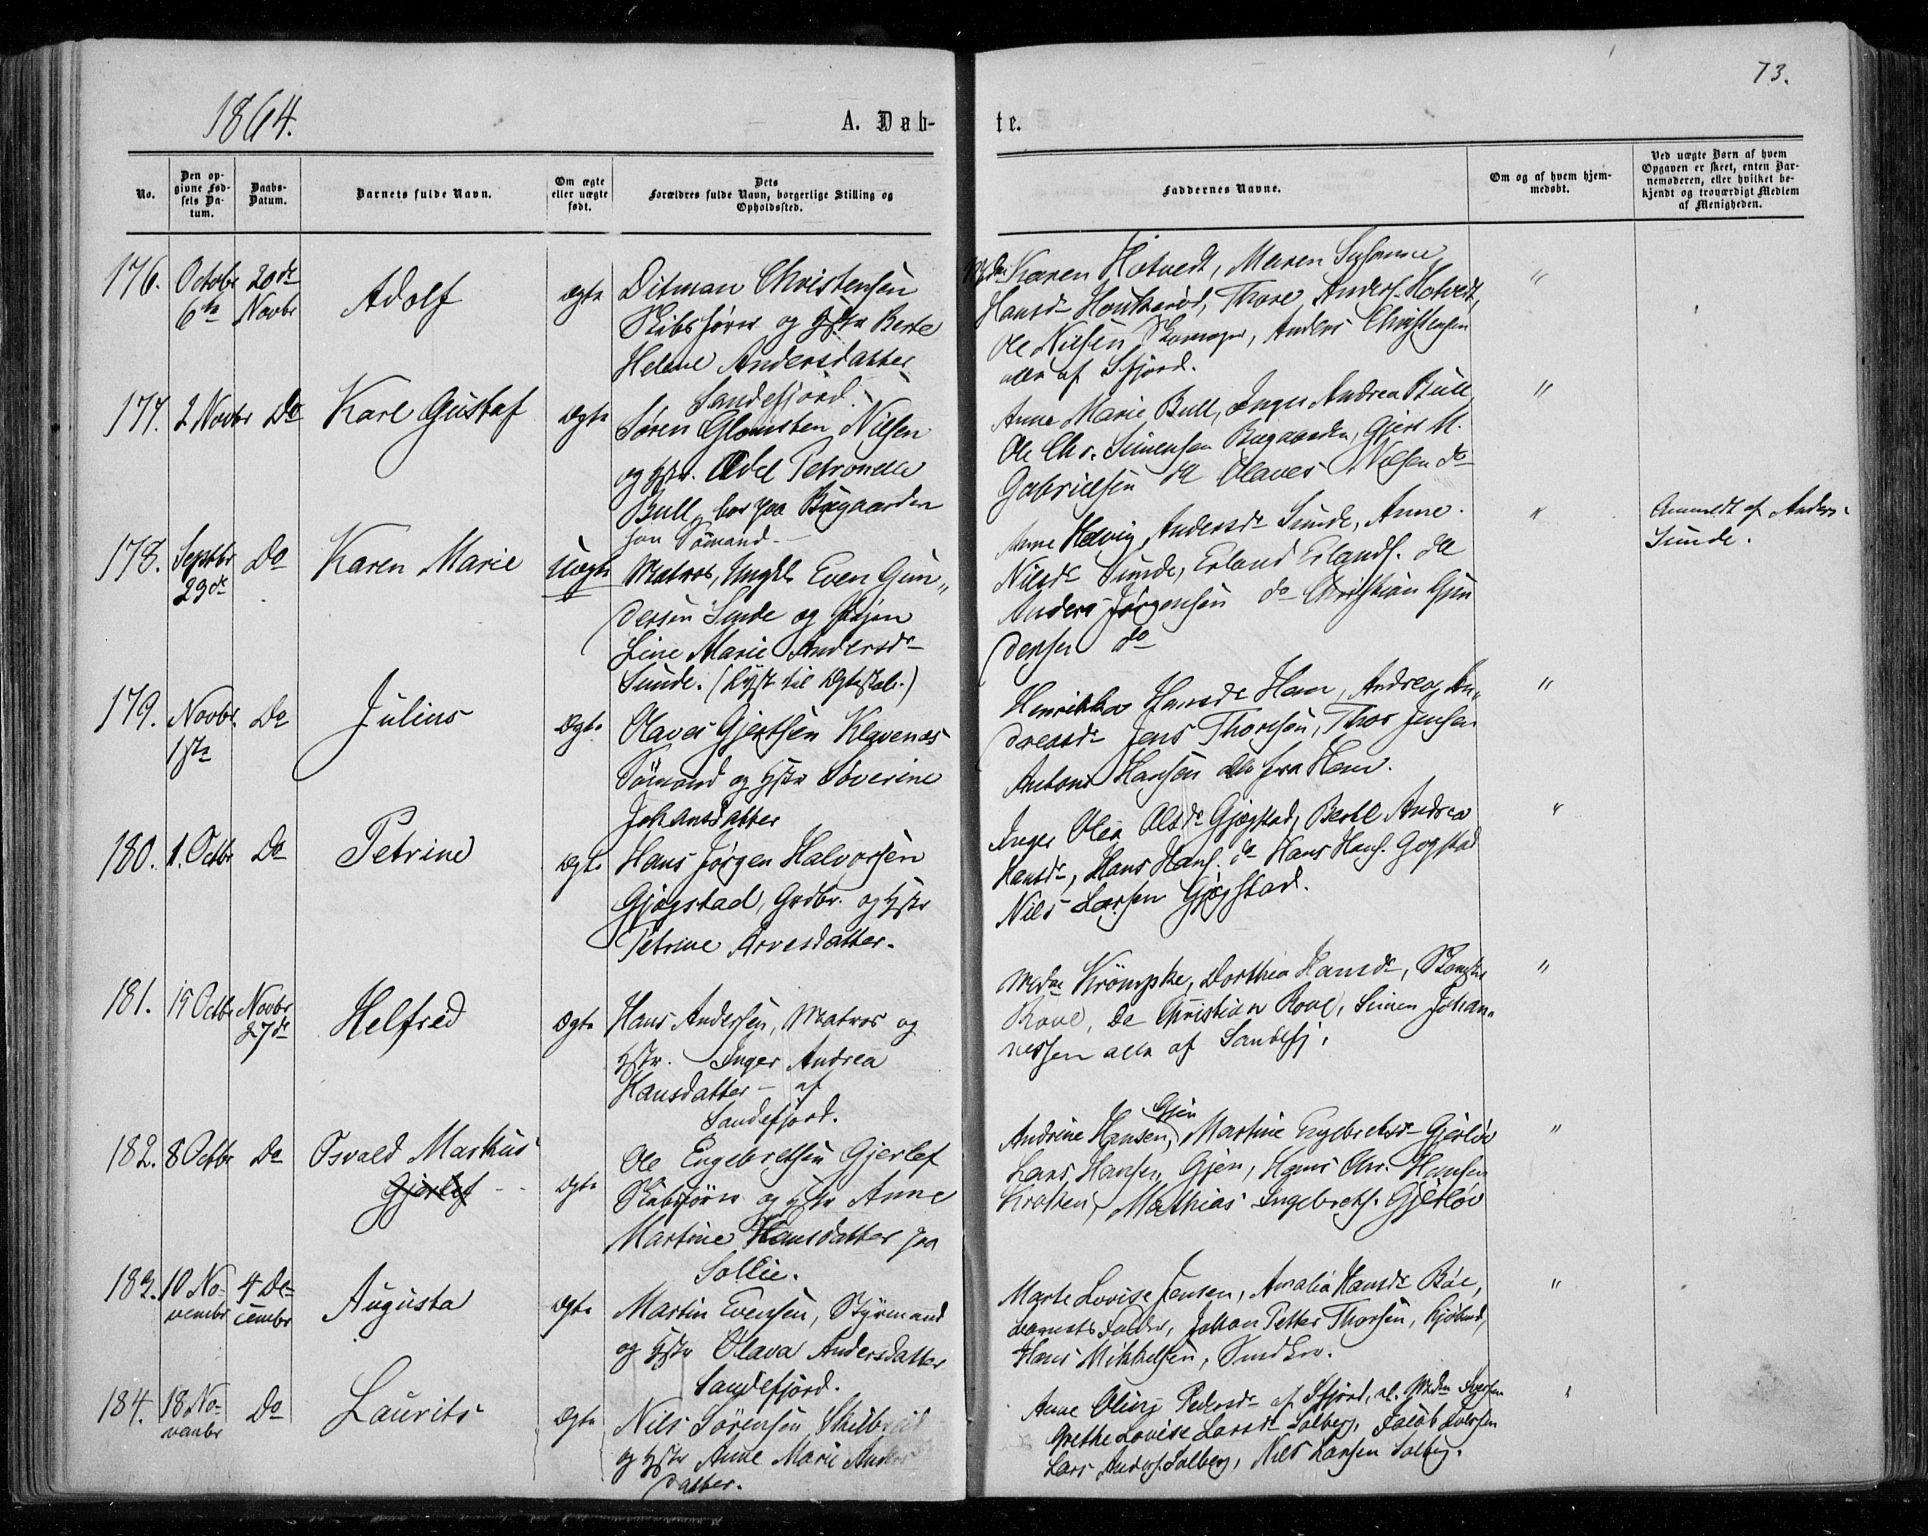 1864.
A. Døb-
te.
73.
No.
Den op-
givne Fød-
sels Da-
tum.
Daabs-
Datum.
Barnets fulde Navn.
Om ægte
eller uægte
født.
Dets
Forældres fulde Navn, borgerlige Stilling og
Opholdssted.
Faddernes Navne.
Om og af hvem hjem-
medøbt.
Ved uægte Børn af hvem
Opgaven er skeet, enten Bar-
nemoderen, eller hvilket be-
kjendt og troværdigt Medlem
af Menigheden.
176. Octobr 20de
6te Novbr
Adolf
ægte
Ditman Christensen
Skibsfører og Hstr Berte
Helene Andersdatter
Sandefjord.
Karen Hotvedt, Maren Susanne
Hansdr Thore Anders. Hotvedt,
Ole Nilsen Anders Christensen
alle af Sfjord.
"
177. 2 Novbr Do
Karl Gustaf
ægte
Søren Nilsen
og Hstr. Petronelle
Bull, bor paa Bugaarden
Sømand.
Anne Marie Bull, Inger Andrea Bull
Ole Chr. Simensen Bugaarden, M.
Gabrielsen do Olaves Nilsen do
"
178. Septbr Do
29de
Karen Marie
Uægte
Matros, Ungkl. Even Gun-
dersen Sunde og Pigen
Line Marie Andersdr
Sunde. (Lyst til Ægteskab.)
Anne Helvig Andersdr Sunde, Anne
Nilsdr Sunde, Erland Erlands. do
Anders Jørgensen do Christian Gun
dersen do
"
Anmeldt af Anders
Sunde.
179. Novbr. Do
1ste
Julius
ægte
Olaves Gjertsen Klavenæs
Sømand og Hstr Severine
Johansdatter
Henrikke Hansdr Hem, Andrea An-
dreasdr Jens Thorsen, Thor Jensen
Anton Hansen alle fra Hem.
"
180. 1. Octbr Do
Petrine
ægte
Hans Jørgen Halvorsen
Gjøgstad, Grdbr. og Hstr
Petrine Arvesdatter.
Inger Olea Olsdr Gjøgstad, Berte Andrea
Hansdr, Hans Hans. do Hans Hans. Gogstad
Nils Larsen Gjøgstad.
"
181. 15 Octbr Novbr
27de
Helfred
ægte
Hans Andersen, Matros og
Hstr. Inger Andrea
Hansdatter - af
Sandefjord.
Mdm Krömpke, Dorthea Hansdr,
Rove, Do Christian Rove, Simen Johan-
nessen alle af Sandefj.
"
182. 8 Octbr Do
Osvald Markus
Gjerlef
ægte
Ole Engebretsen Gjerlef
Skibsfører og Hstr Anne
Martine Hansdatter paa
Sollie.
Gjen
Andrine Hansen, Martine Engebretsdr Gjerløv
Lars Hansen Gjen, Hans Chr. Hansen
Krokken, Mathias Ingebrets. Gjerløv
"
183. 10 No- 4 De-
vembr cembr
Augusta
ægte
Martin Evensen, Styrmand
og Hstr Olava Andersdatter
Sandefjord.
Marte Lovise Jensen, Amalia Hansdr Bøe,
Barnets Fader, Johan Petter Thorsen,
Hans Mikkelsen,
"
184. 18 No- Do
vembr
Laurits
ægte
Nils Sørensen
og Hstr Anne Marie Anders
datter.
Anne Oline Pedersdr af Sfjord, Mdm Iversen
Grethe Lovise Larsdr Solberg, Jacob Iversen
Lars Anders. Solberg, Nils Larsen Solberg.
"